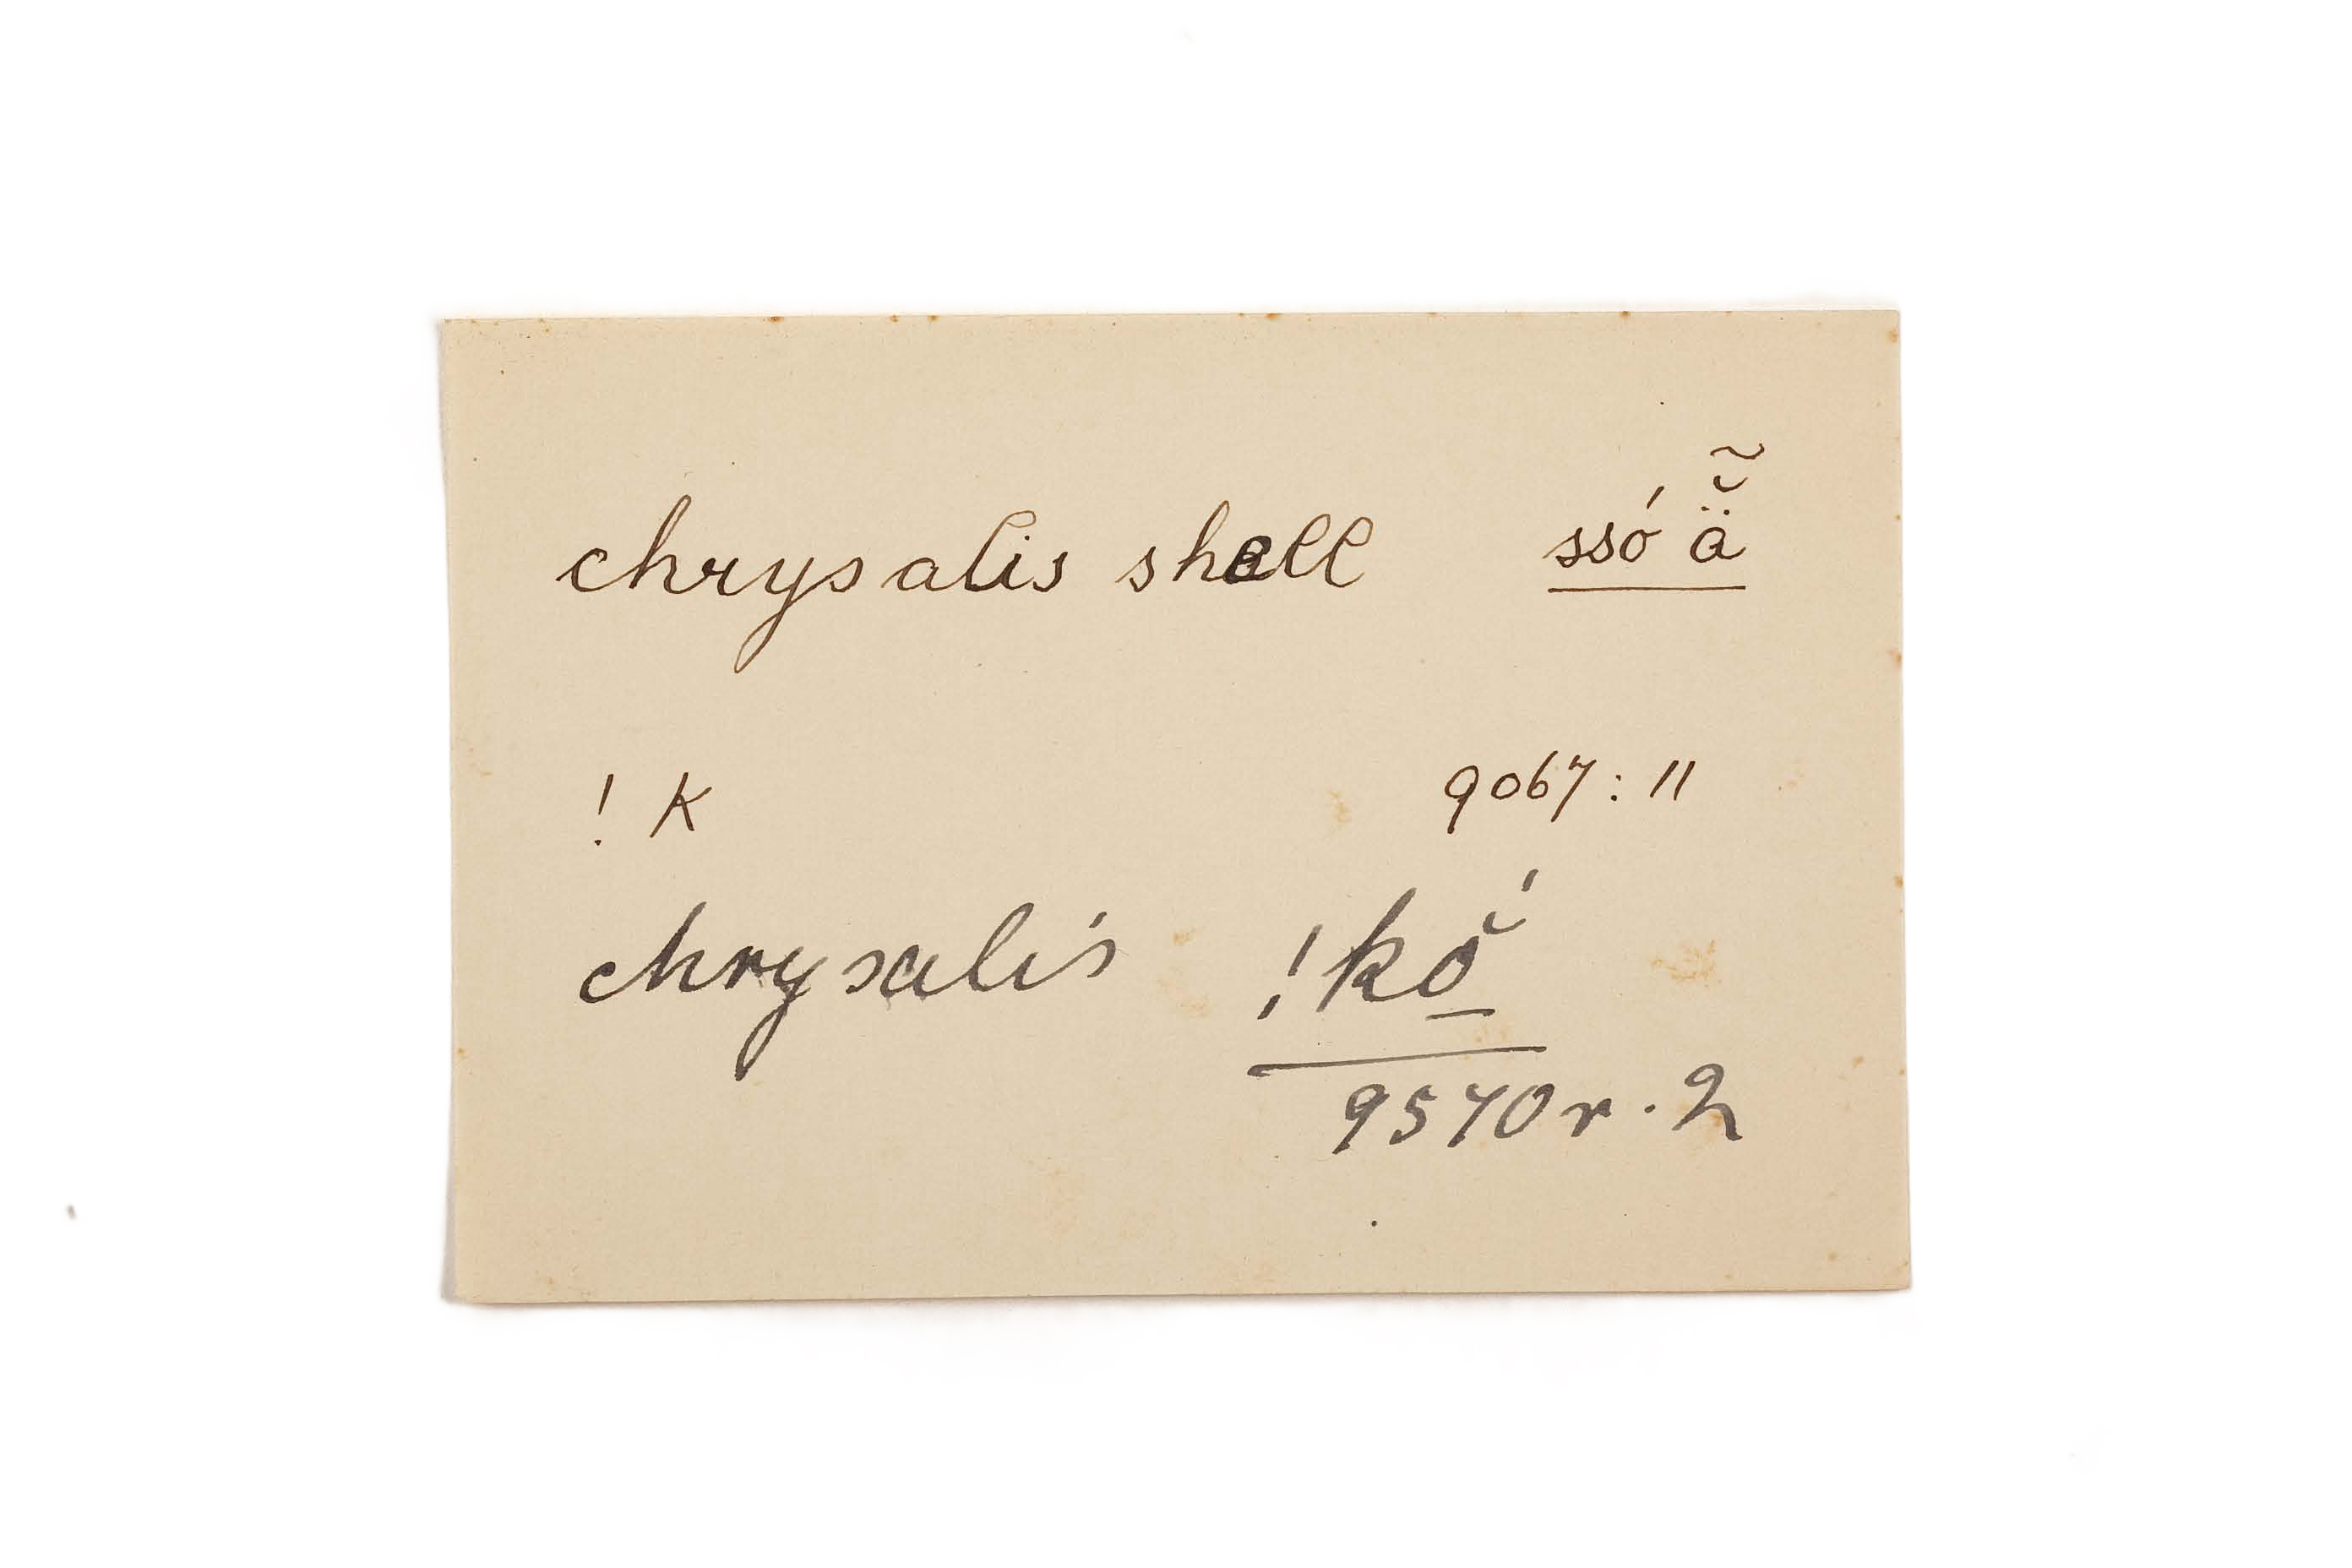 chrysalis shell ssó ä̰̆̃
! K 9067 : 11
chrysalis !kŏ̠́
9570 r. 2